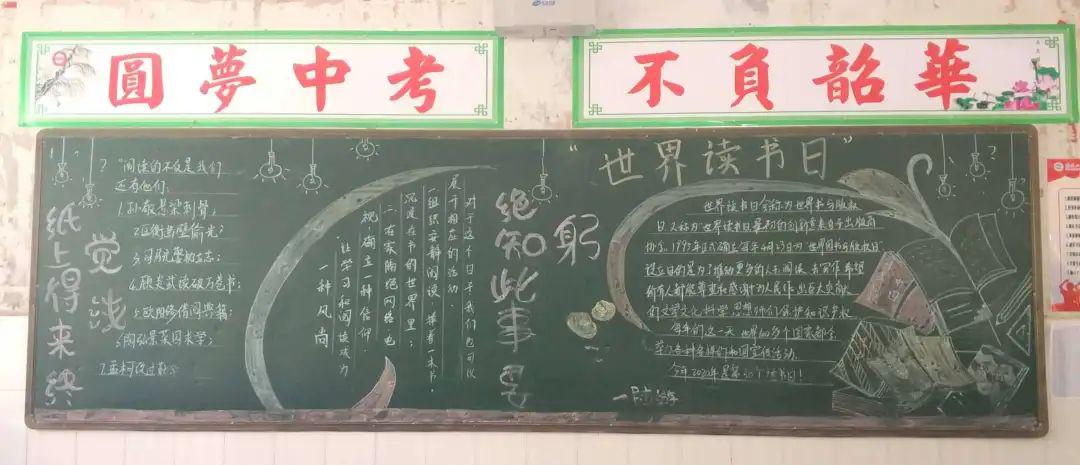 圓夢中考
不負韶華
“世界读书日”
纸上得来终
觉浅
绝知此事要
躬
“阅读的不仅是我们
还有他们:
1.孙敬悬梁刺骨;
2.匡衡凿壁偷光;
4.顾炎武读破万卷书
5.欧阳修借阅典籍;
对于这个日子我们也可以
展开相应的活动.
一组织安静阅读 捧着一本书.
沉浸在书的世界里;
二.在家隔绝网络.电
视.树立一种信仰
“让学习和阅读成为
一种风尚
世界读书日全称为世界书与版权
日.又称为“世界读书日最初的创意来自于出版商
协会.1995年正式确立每年4月23日为“世界图书与版权日”
设立目的是为了推动更多的人去阅读 去写作.希望
所有人都能尊重和感谢为人民作出巨大贡献
们文学文化.科学.思想师们保护知识产权
每年的这一天 世界100多个国家都会
举办各种各样的
今年2020年是第